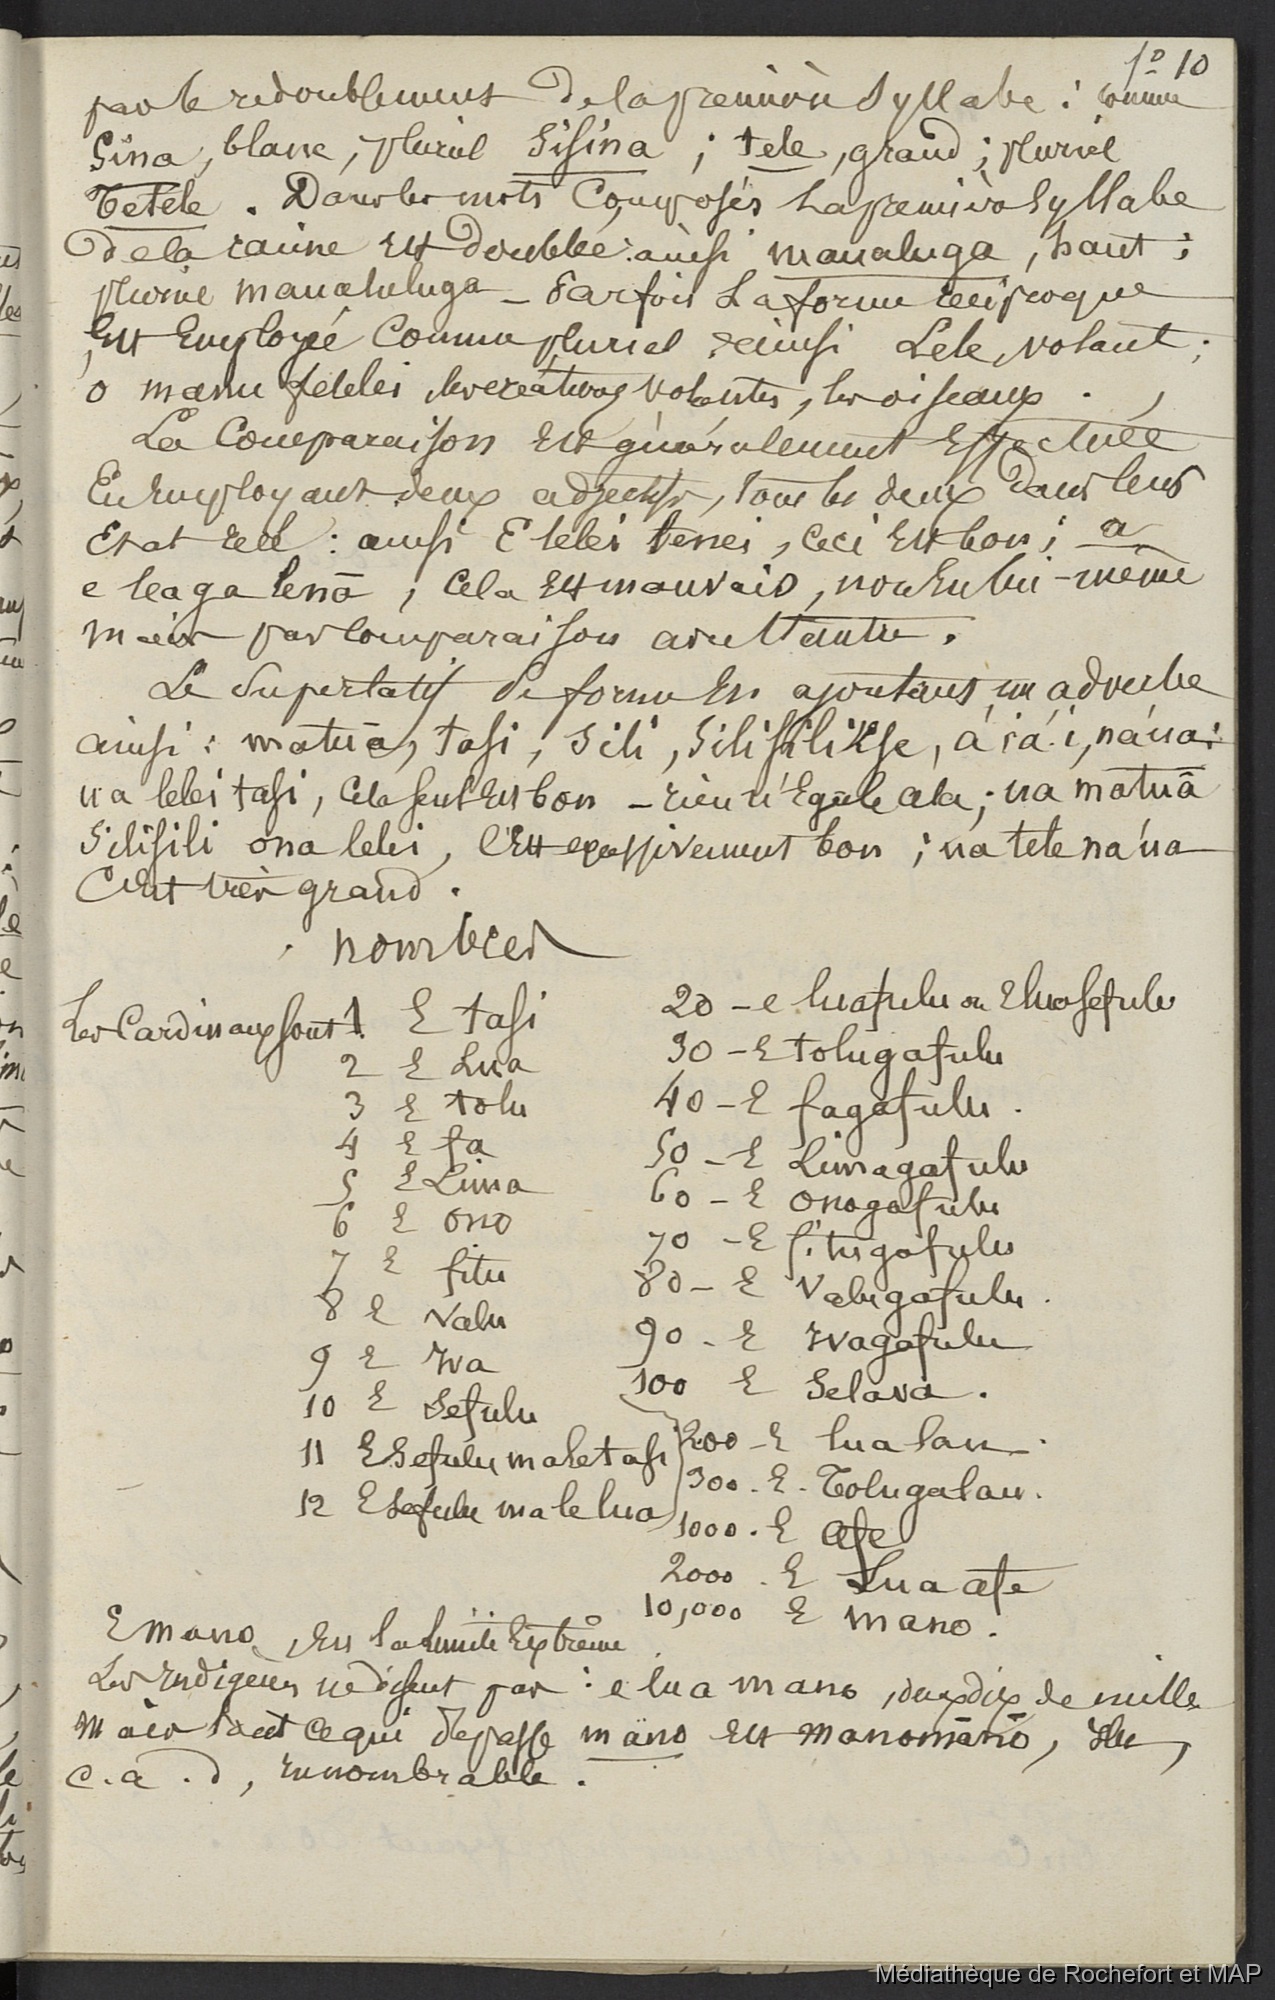 fo 10
par le redoublement de la première syllabe : comme
Sina, blanc, pluriel Sisina ; tele, grand ; pluriel
Tetele. Dans les mots Composés la première syllabe
de la racine est doublée : ainsi maualuga, haut ;
pluriel maualuluga _ Parfois La forme réciproque
est Employée Comme pluriel : ainsi Lele, volant ;
o manu felelei, les créatures volantes, les oiseaux.
La Comparaison est généralement Effectuée
En Employant deux adjectifs, tous les deux dans leur
Etat réel : ainsi E lelei lenei, ceci est bon ; a
e leaga lenā, cela est mauvais, non en lui-même
mais par comparaison avec l'autre.
Le Superlatif se forme En ajoutant un adverbe
ainsi : matuā, tasi, sili, silisili ese, á iá.i, náua :
ua lelei tasi, cela seul est bon _ rien n'égale cela ; ua matuā
silisili ona lelei, C'est excessivement bon ; ua tele náua
C'est très grand.
nombres
Les Cardinaux sont 1 E tasi
2 E Lua
3 E tolu
4 E fa
5 E Lima
6 E ono
7 E fitu
8 E valu
9 E Iva
10 E Sefulu
11 E Sefulu ma le tasi
12 E Sefulu ma le lua
20 - e luafulu ou E luasefulu
30 - E tolugafulu
40 - E fagafulu.
50 - E Limagafulu
60 - E onogafulu
70 - E fitugafulu
80 - E valugafulu.
90 - E Ivagafulu
100 E Selava.
200 - E lua lau.
300. E. Tolugalau.
1000. E Afe
2000. E Lua afe
10,000 E mano.
E mano, Est la limite Extrême
Les Indigènes ne disent pas : e lua mano, deux dix de mille
mais tout ce qui dépasse māno est manomānō, Ilu,
c.a.d, innombrable.
Médiathèque de Rochefort et MAP